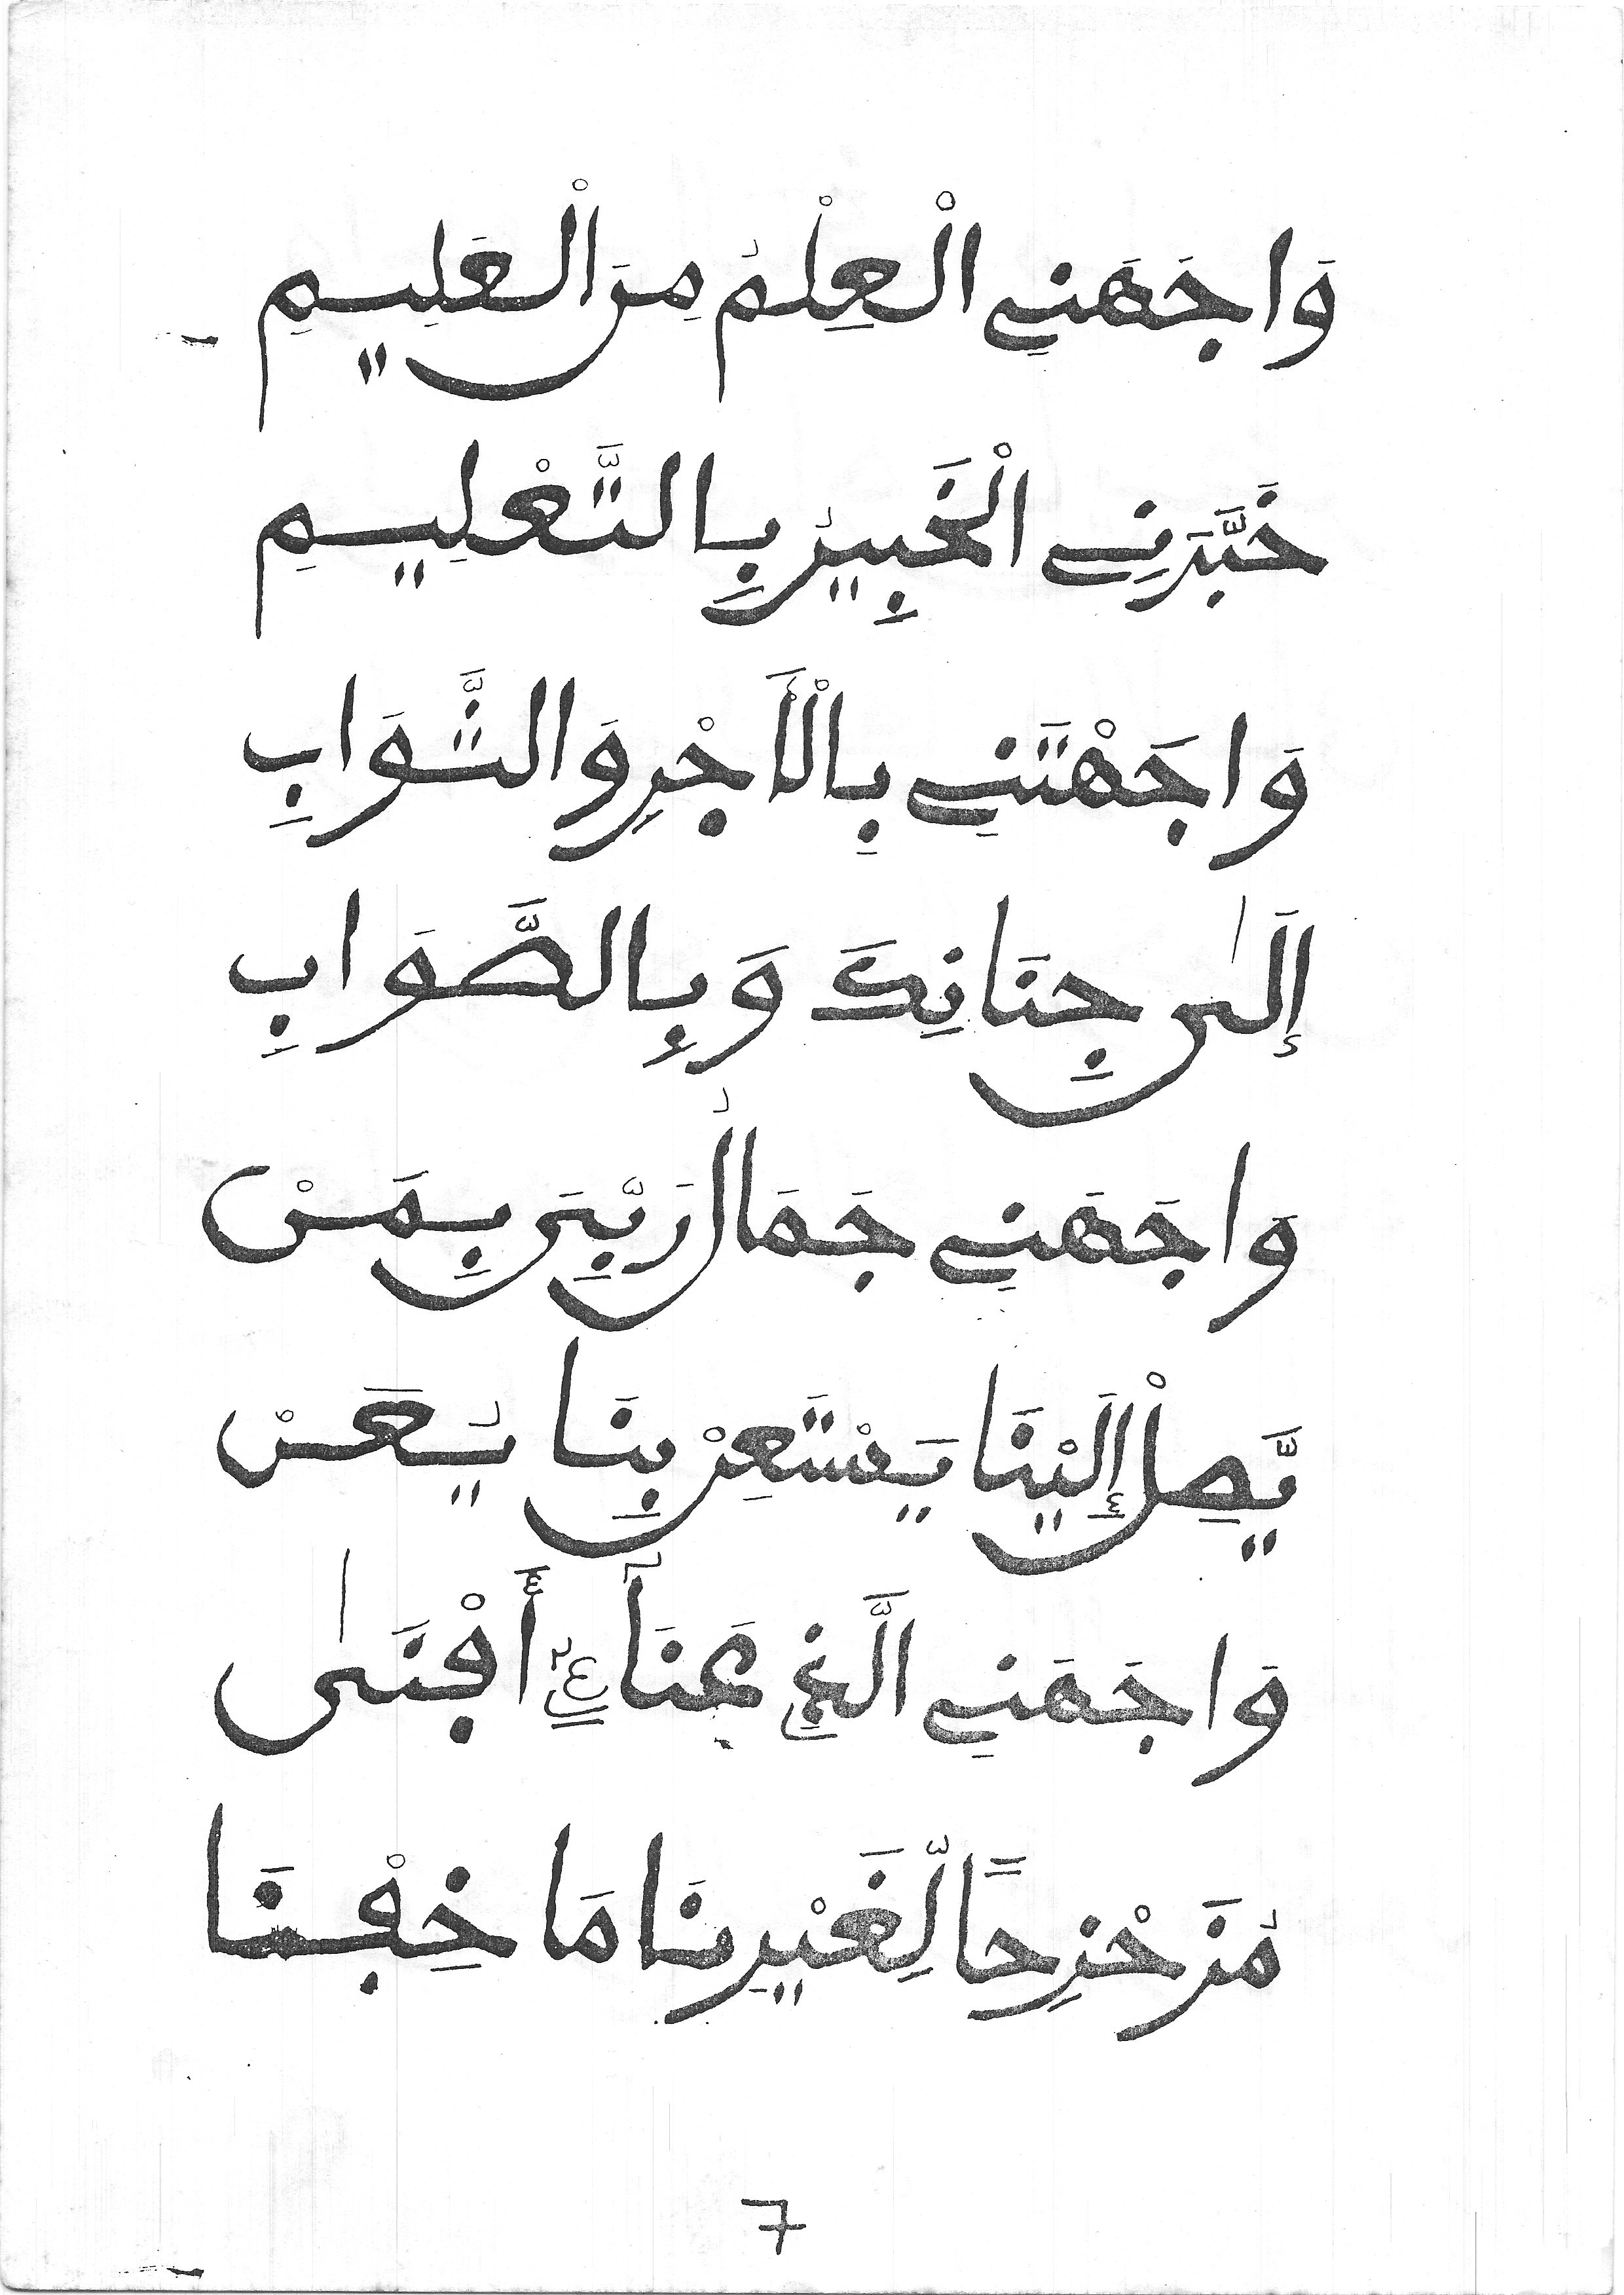 وَاجَهَنِي الْعِلْمُ مِنَ الْعَلِيمِ
خَبَّرَنِي الْخَبِيرُ بِالتَّعْلِيمِ
وَاجَهْتَنِي بِالْأَجْرِ وَالثَّوَابِ
إِلَىٰ جِنَانِكَ وَبِالصَّوَابِ
وَاجَهَنِي جَمَالُ رَبِّيَ بِمَنْ
يَّصِلْ إِلَيْنَا يَسْتَعِنْ بِنَا يُعَنْ
وَاجَهَنِي الَّذِي عَنَآءِي أَفْنَىٰ
مُزَحْزِحاً لِّغَيْرِنَا مَا خِفْنَا
7